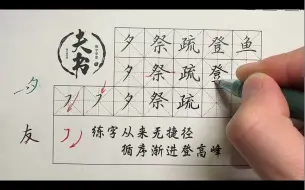 夫书
夕祭疏登鱼
夕 夕祭疏登
㇇ ㇇ 夕祭疏
友 ㇇ 练字从来无捷径
循序渐进登高峰